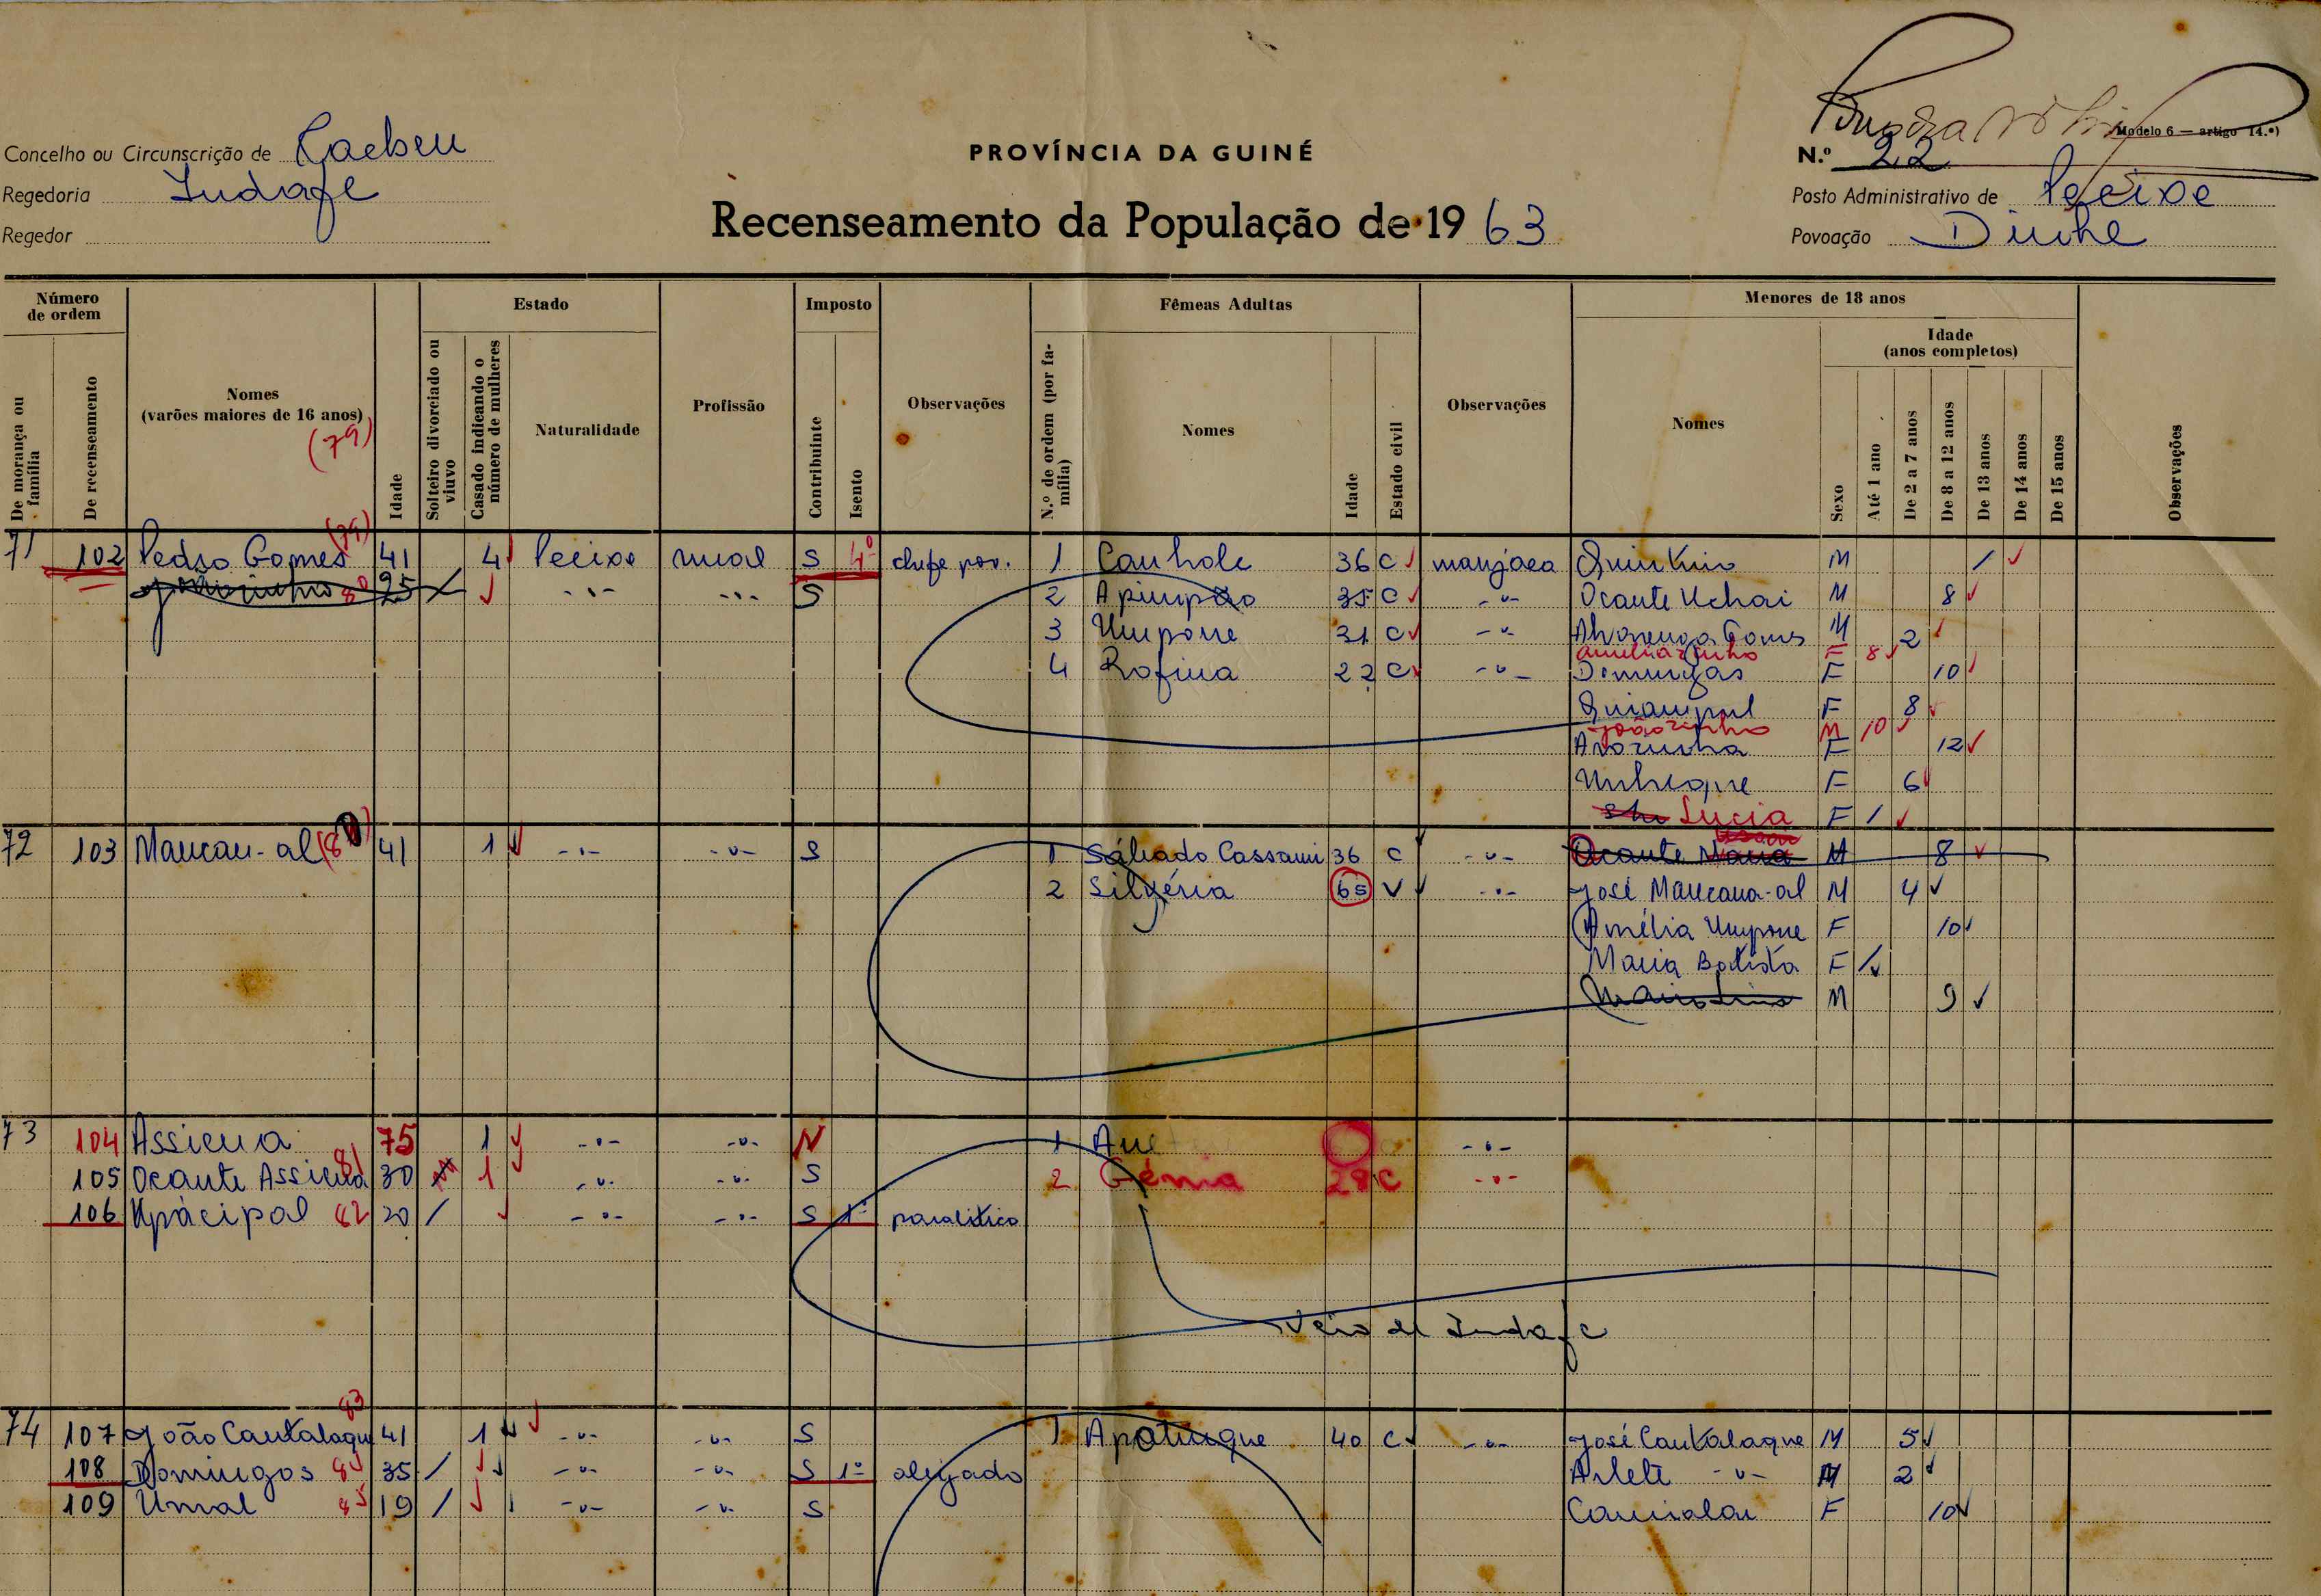 Modelo 6 — artigo 14.º)
Concelho ou Circunscrição de Cacheu
PROVÍNCIA DA GUINÉ
N.º 22
Regedoria Indafe
Recenseamento da População de 19 63
Posto Administrativo de Pecixe
Regedor
Povoação
Número de ordem
Estado
Imposto
Fêmeas Adultas
Menores de 18 anos
Idade (anos completos)
De morança ou família
De recenseamento
Nomes (varões maiores de 16 anos)
(79)
Idade
Solteiro divorciado ou viuvo
Casado indicando o número de mulheres
Naturalidade
Profissão
Contribuinte
Isento
Observações
N.º de ordem (por família)
Nomes
Idade
Estado civil
Observações
Nomes
Sexo
Até 1 ano
De 2 a 7 anos
De 8 a 12 anos
De 13 anos
De 14 anos
De 15 anos
Observações
71 102 Pedro Gomes (79) 41 4 Pecixe rural S 4º chefe pov. 1 Canhole 36 C manjaca M /
25 S 2 35 C Ocante Uchai M 8
3 Umpone 31 C Gomes M 2
F 8
4 Rofina 22 C Domingas F 10
F 8
Joãozinho M 10
F 12
F 6
Lucia F /
72 103 Mancau-al 41 1 S 1 Sábado Cassami 36 C Ocante M 8
2 Silvéria 65 V José Mancana-al M 4
Amélia Umpone F 10
Maria Batista F /
M 9
73 104 Assiena 75 1 N 1
105 Ocante Assiena 81 30 1 S 2 Génia 28 C
106 Upàcipal 82 20 / S 1º paralitico
Veio de Indafe
83
74 107 João Cantalaque 41 1 S 1 Apatinque 40 C José Cantalaque M 5
108 Domingos 84 35 / S 1º aleijado Arlete M 2
109 Umal 85 19 / S F 10